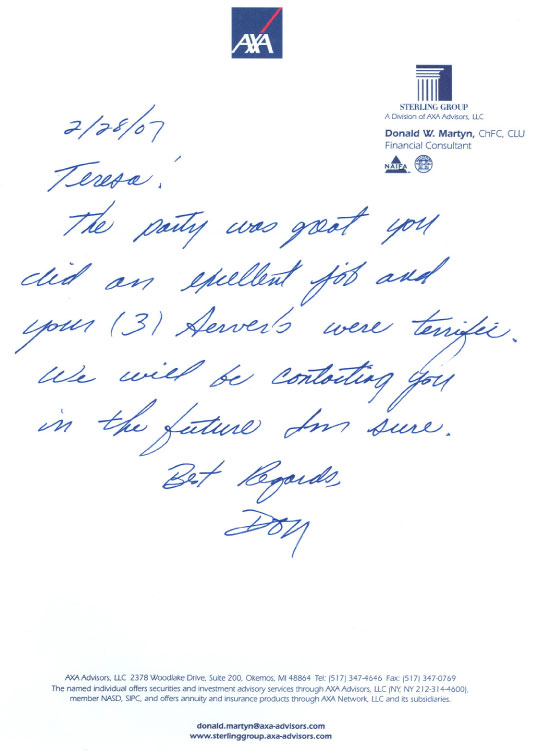 AXA
STERLING GROUP
A Division of AXA Advisors, LLC
Donald W. Martyn, ChFC, CLU
Financial Consultant
NAIFA
2/28/07
Teresa!
The party was great you
did an excellent job and
your (3) Server's were terrific.
We will be contacting you
in the future Im sure.
Best Regards,
Don
AXA Advisors, LLC 2378 Woodlake Drive, Suite 200, Okemos, MI 48864 Tel: (517) 347-4646 Fax: (517) 347-0769
The named individual offers securities and investment advisory services through AXA Advisors, LLC (NY, NY 212-314-4600),
member NASD, SIPC, and offers annuity and insurance products through AXA Network, LLC and its subsidiaries.
donald.martyn@axa-advisors.com
www.sterlinggroup.axa-advisors.com